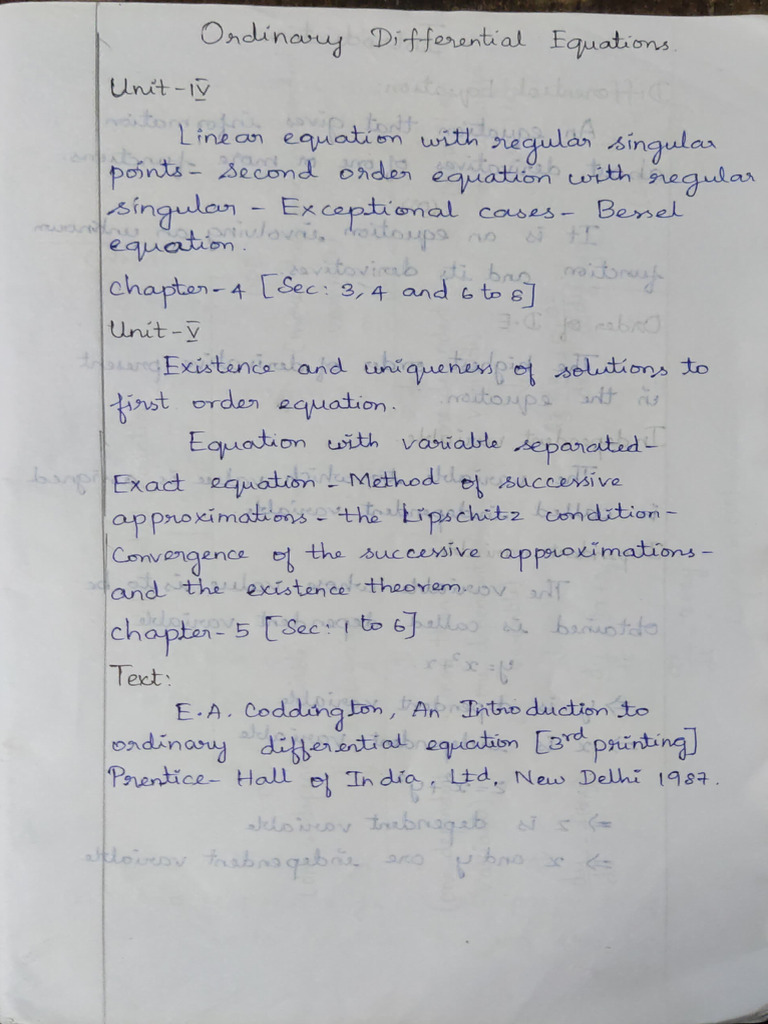 Ordinary Differential Equations.
Unit-IV
Linear equation with regular singular
points - Second order equation with regular
singular - Exceptional cases - Bessel
equation.
Chapter-4 [Sec: 3, 4 and 6 to 8]
Unit-V
Existence and uniqueness of solutions to
first order equation.
Equation with variable separated-
Exact equation - Method of successive
approximations - the Lipschitz condition-
Convergence of the successive approximations-
and the existence theorem.
Chapter-5 [Sec: 1 to 6]
Text:
E.A. Coddington, An Introduction to
ordinary differential equation [3rd printing]
Prentice-Hall of India, Ltd, New Delhi 1987.